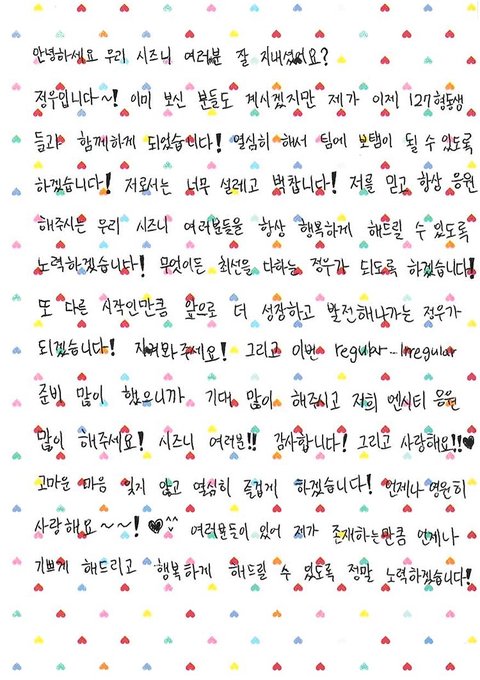 안녕하세요 우리 시즈니 여러분 잘 지내셨어요?
정우입니다~! 이미 보신 분들도 계시겠지만 제가 이제 127형동생
들과 함께하게 되었습니다! 열심히 해서 팀에 보탬이 될 수 있도록
하겠습니다! 저로서는 너무 설레고 벅찹니다! 저를 믿고 항상 응원
해주시는 우리 시즈니 여러분들을 항상 행복하게 해드릴 수 있도록
노력하겠습니다! 무엇이든 최선을 다하는 정우가 되도록 하겠습니다!
또 다른 시작인만큼 앞으로 더 성장하고 발전해나가는 정우가
되겠습니다! 지켜봐주세요! 그리고 이번 regular-Irregular
준비 많이 했으니까 기대 많이 해주시고 저희 엔시티 응원
많이 해주세요! 시즈니 여러분!! 감사합니다! 그리고 사랑해요!!♥
고마운 마음 잊지 않고 열심히 즐겁게 하겠습니다! 언제나 영원히
사랑해요~~~! ♥^^ 여러분들이 있어 제가 존재하는만큼 언제나
기쁘게 해드리고 행복하게 해드릴 수 있도록 정말 노력하겠습니다!